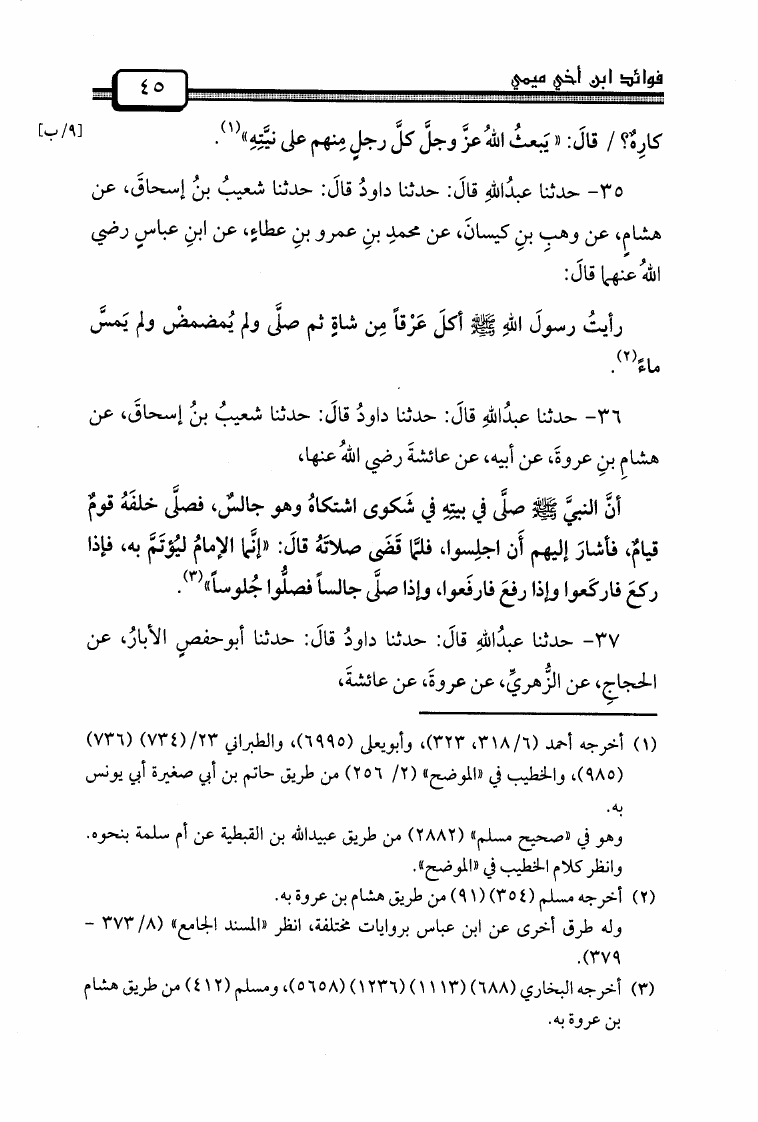 فوائد ابن أخي ميمي
٤٥
كارِهٌ؟ / قالَ: «يَبعثُ اللهُ عزَّ وجلَّ كلَّ رجلٍ مِنهم على نيَّتِهِ»(١).
[٩/ب]
٣٥- حدثنا عبدُاللهِ قالَ: حدثنا داودُ قالَ: حدثنا شعيبُ بنُ إسحاقَ، عن
هشامٍ، عن وهبِ بنِ كيسانَ، عن محمدِ بنِ عمرو بنِ عطاءٍ، عن ابنِ عباسٍ رضي
اللهُ عنهما قالَ:
رأيتُ رسولَ اللهِ ﷺ أكلَ عَرْقاً مِن شاةٍ ثم صلَّى ولم يُمضمضْ ولم يَمسَّ
ماءً(٢).
٣٦- حدثنا عبدُاللهِ قالَ: حدثنا داودُ قالَ: حدثنا شعيبُ بنُ إسحاقَ، عن
هشامِ بنِ عروةَ، عن أبيه، عن عائشةَ رضي اللهُ عنها،
أنَّ النبيَّ ﷺ صلَّى في بيتِهِ في شَكوى اشتكاهُ وهو جالسٌ، فصلَّى خلفَهُ قومٌ
قيامٌ، فأشارَ إليهم أَن اجلِسوا، فلمَّا قَضَى صلاتَهُ قالَ: «إنَّما الإمامُ ليُؤتَمَّ به، فإذا
ركعَ فاركَعوا وإذا رفعَ فارفَعوا، وإذا صلَّى جالساً فصلُّوا جُلوساً»(٣).
٣٧- حدثنا عبدُاللهِ قالَ: حدثنا داودُ قالَ: حدثنا أبوحفصٍ الأبارُ، عن
الحجاجِ، عن الزُّهريِّ، عن عروةَ، عن عائشةَ،
(١) أخرجه أحمد (٣١٨/٦، ٣٢٣)، وأبويعلى (٦٩٩٥)، والطبراني ٢٣/(٧٣٤) (٧٣٦)
(٩٨٥)، والخطيب في «الموضح» (٢/ ٢٥٦) من طريق حاتم بن أبي صغيرة أبي يونس
به.
وهو في «صحيح مسلم» (٢٨٨٢) من طريق عبيدالله بن القبطية عن أم سلمة بنحوه.
وانظر كلام الخطيب في «الموضح».
(٢) أخرجه مسلم (٣٥٤) (٩١) من طريق هشام بن عروة به.
وله طرق أخرى عن ابن عباس بروايات مختلفة، انظر «المسند الجامع» (٨/ ٣٧٣ -
٣٧٩).
(٣) أخرجه البخاري (٦٨٨) (١١١٣) (١٢٣٦) (٥٦٥٨)، ومسلم (٤١٢) من طريق هشام
بن عروة به.